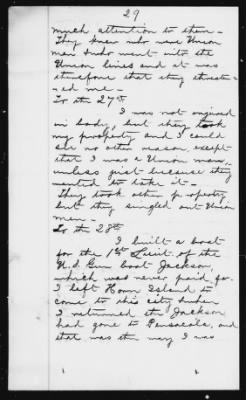 29
much attention to them -
They knew who were Union
men & who went into the
Union lines and it was
therefore that they threat-
-ed me -
To the 27th
I was not injured
in body, but they took
my property and I could
see no other reason, except
that I was a Union man,
unless just because they
wanted to take it -
They took other property
but they singled out Union
men -
To the 28th
I built a boat
for the 1st Lieut. of the
U.S. Gun boat Jackson
which was never paid for.
I left Horn Island to
come to this city when
I returned the Jackson
had gone to Pensacola, and
that was the way I was